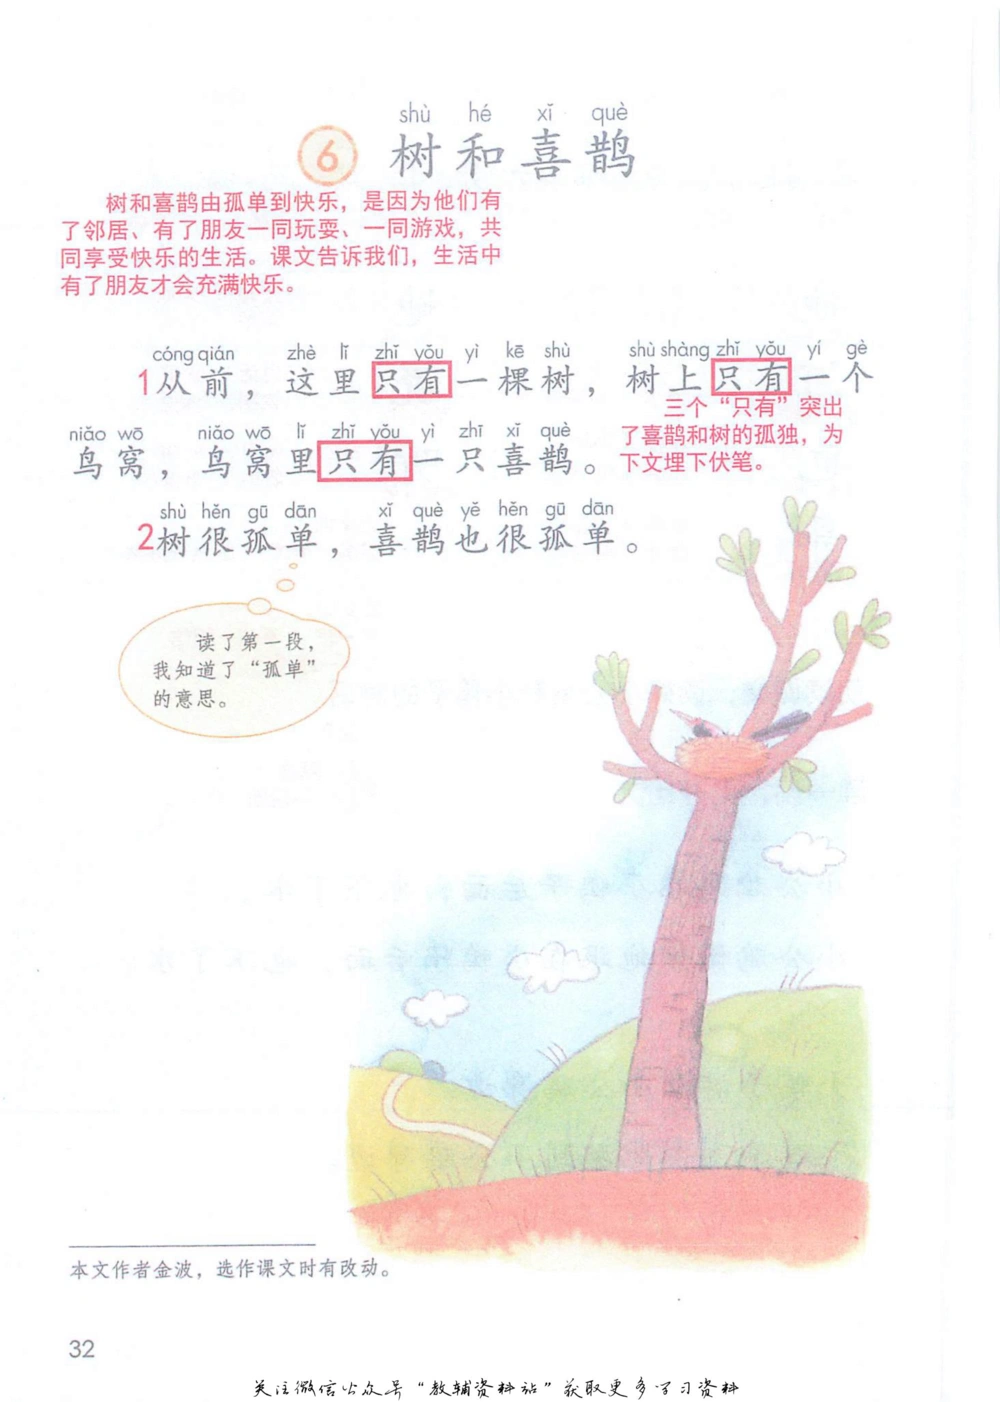 shù hé xǐ què
6 树和喜鹊
树和喜鹊由孤单到快乐，是因为他们有
了邻居、有了朋友一同玩耍、一同游戏，共
同享受快乐的生活。课文告诉我们，生活中
有了朋友才会充满快乐。
cóng qián zhè lǐ zhǐ yǒu yì kē shù shù shàng zhǐ yǒu yí gè
1从前，这里只有一棵树，树上只有一个
三个“只有”突出
了喜鹊和树的孤独，为
下文埋下伏笔。
niǎo wō niǎo wō lǐ zhǐ yǒu yì zhī xǐ què
鸟窝，鸟窝里只有一只喜鹊。
shù hěn gū dān xǐ què yě hěn gū dān
2树很孤单，喜鹊也很孤单。
读了第一段，
我知道了“孤单”
的意思。
本文作者金波，选作课文时有改动。
32
关注微信公众号“教辅资料站”获取更多学习资料